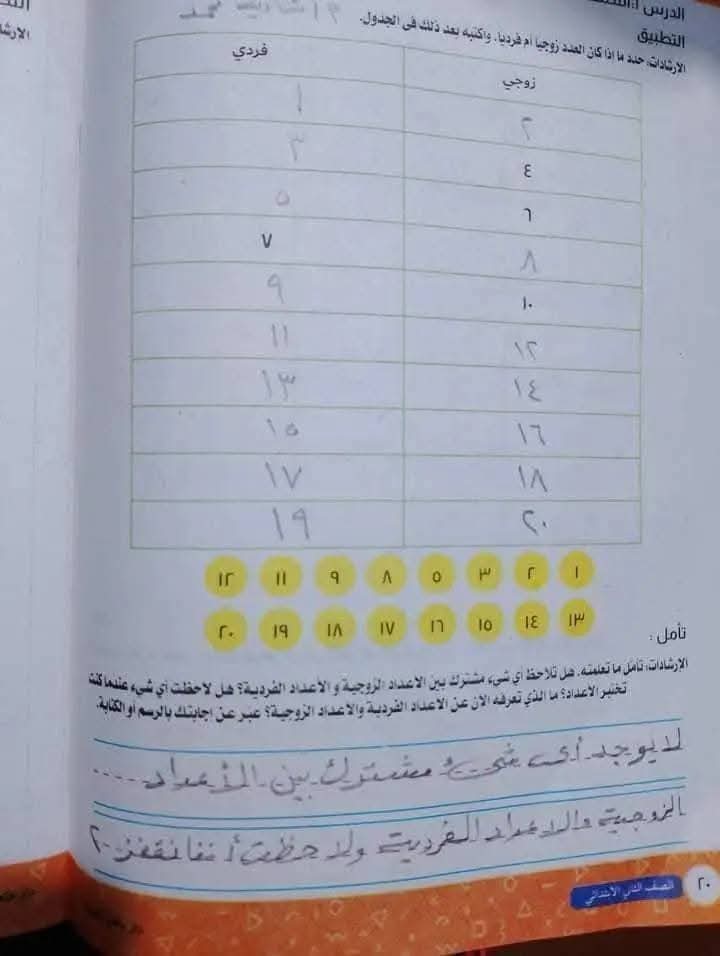 الدرس
التطبيق
الإرشادات: حدد ما إذا كان العدد زوجيا أم فرديا. واكتبه بعد ذلك في الجدول.
زوجي فردي
٢ ١
٤ ٣
٦ ٥
٨ ٧
١٠ ٩
١٢ ١١
١٤ ١٣
١٦ ١٥
١٨ ١٧
٢٠ ١٩
١ ٢ ٣ ٥ ٨ ٩ ١١ ١٢
١٣ ١٤ ١٥ ١٦ ١٧ ١٨ ١٩ ٢٠
تأمل :
الإرشادات: تأمل ما تعلمته. هل تلاحظ أي شيء مشترك بين الاعداد الزوجية و الأعداد الفردية؟ هل لاحظت أي شيء عندما كنت
تختبر الاعداد؟ ما الذي تعرفه الآن عن الاعداد الفردية والاعداد الزوجية؟ عبر عن إجابتك بالرسم أو الكتابة.
لا يوجد أي شيء مشترك بين الأعداد
الزوجية والاعداد الفردية ولاحظت أننا نقفز ٢٠
٢٠ الصف الثاني الابتدائي